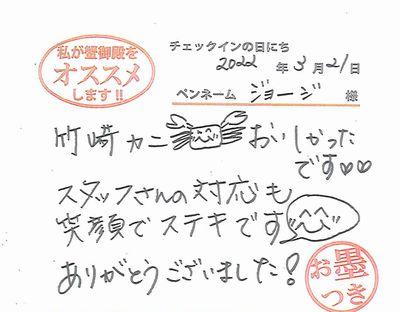 私が蟹御殿を
オススメ
します!!
チェックインの日にち
2022年3月21日
ペンネーム ジョージ 様
竹崎カニ おいしかった
です♡♡
スタッフさんの対応も
笑顔でステキです
ありがとうございました!
お墨
つき